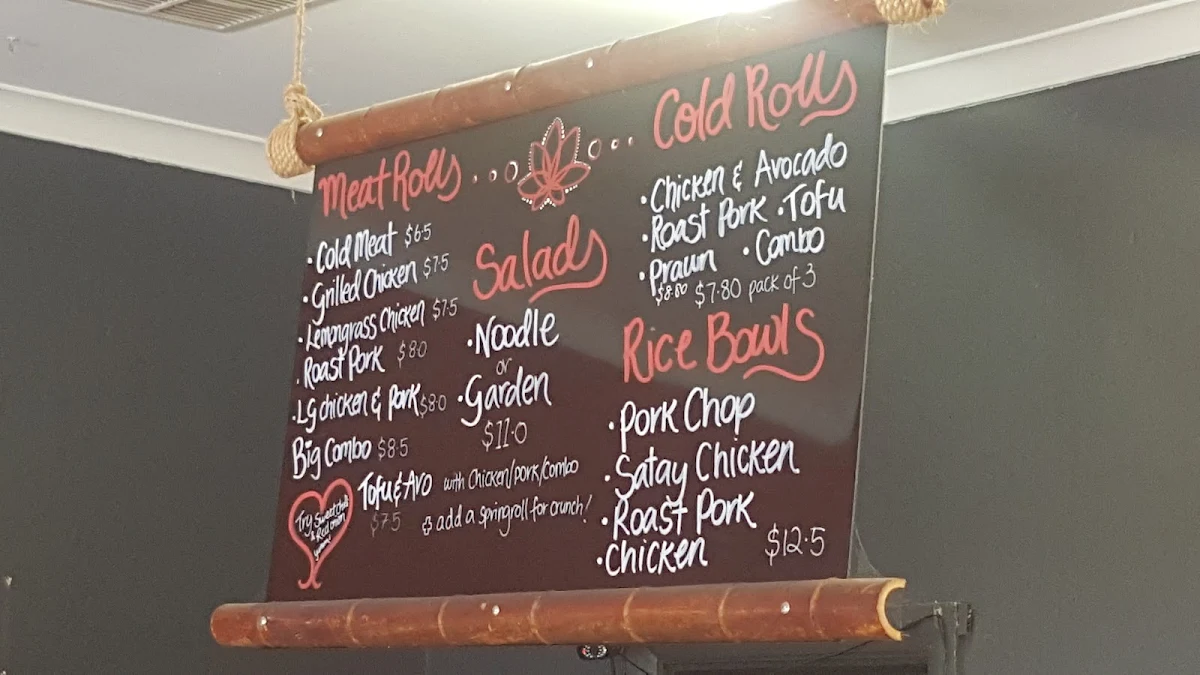 Meat Rolls
• Cold Meat $6.5
• Grilled Chicken $7.5
• Lemongrass Chicken $7.5
• Roast Pork $8.0
• LG chicken & pork $8.0
Big Combo $8.5
Tofu & Avo
$7.5
Try Sweet chilli
& Red onion
yumm!
Salads
• Noodle
or
• Garden
$11.0
with Chicken/pork/combo
& add a springroll for crunch!
Cold Rolls
• Chicken & Avocado
• Roast Pork • Tofu
• Prawn • Combo
$8.80 $7.80 pack of 3
Rice Bowls
• Pork Chop
• Satay Chicken
• Roast Pork
• Chicken $12.5